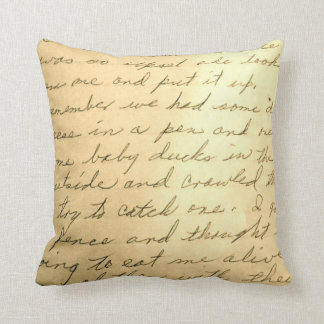 was so upset he took
me and put it up.
remember we had some d
ese in a pen and we
me baby ducks in the
utside and crawled th
try to catch one. I g
fence and thought
ing to eat me alive